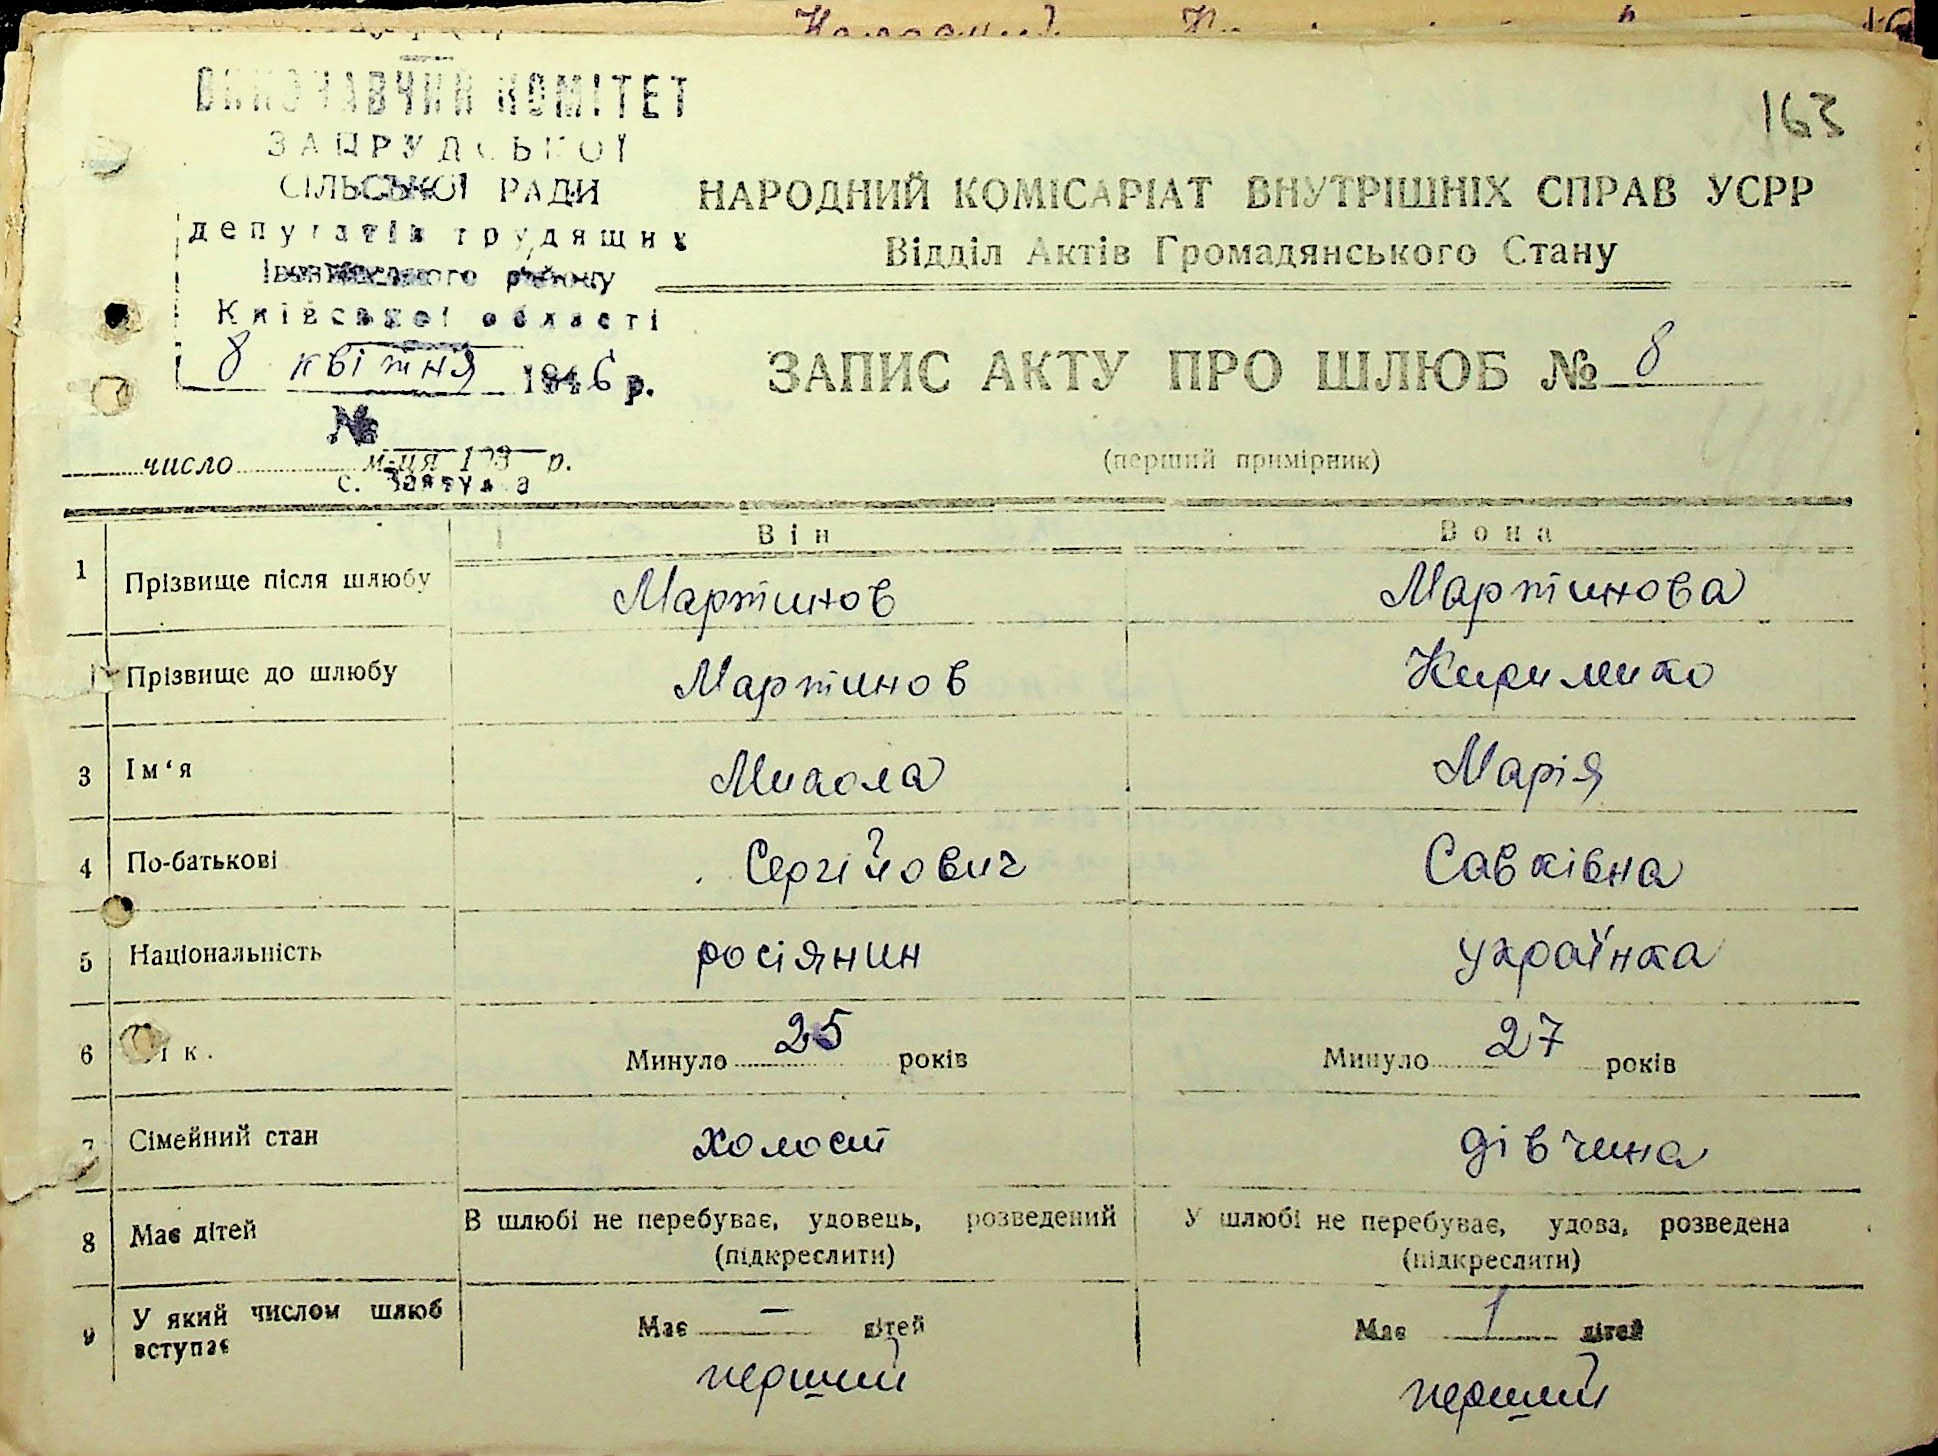 ВИКОНАВЧИЙ КОМІТЕТ
ЗАПРУДСЬКОЇ
СІЛЬСЬКОЇ РАДИ
депутатів трудящих
району
Київської області
8 квітня 1946 р.
№
163
НАРОДНИЙ КОМІСАРІАТ ВНУТРІШНІХ СПРАВ УСРР
Відділ Актів Громадянського Стану
ЗАПИС АКТУ ПРО ШЛЮБ № 8
(перший примірник)
число м-ця 193 р.
с.
Він Вона
1 Прізвище після шлюбу Мартинов Мартинова
Прізвище до шлюбу Мартинов
3 Ім‘я Микола Марія
4 По-батькові Сергійович Савківна
5 Національність росіянин українка
6 ік. Минуло 25 років Минуло 27 років
7 Сімейний стан холост дівчина
8 Має дітей В шлюбі не перебуває, удовець, розведений У шлюбі не перебуває, удова, розведена
(підкреслити) (підкреслити)
9 У який числом шлюб вступає Має – дітей Має 1 дітей
перший перший